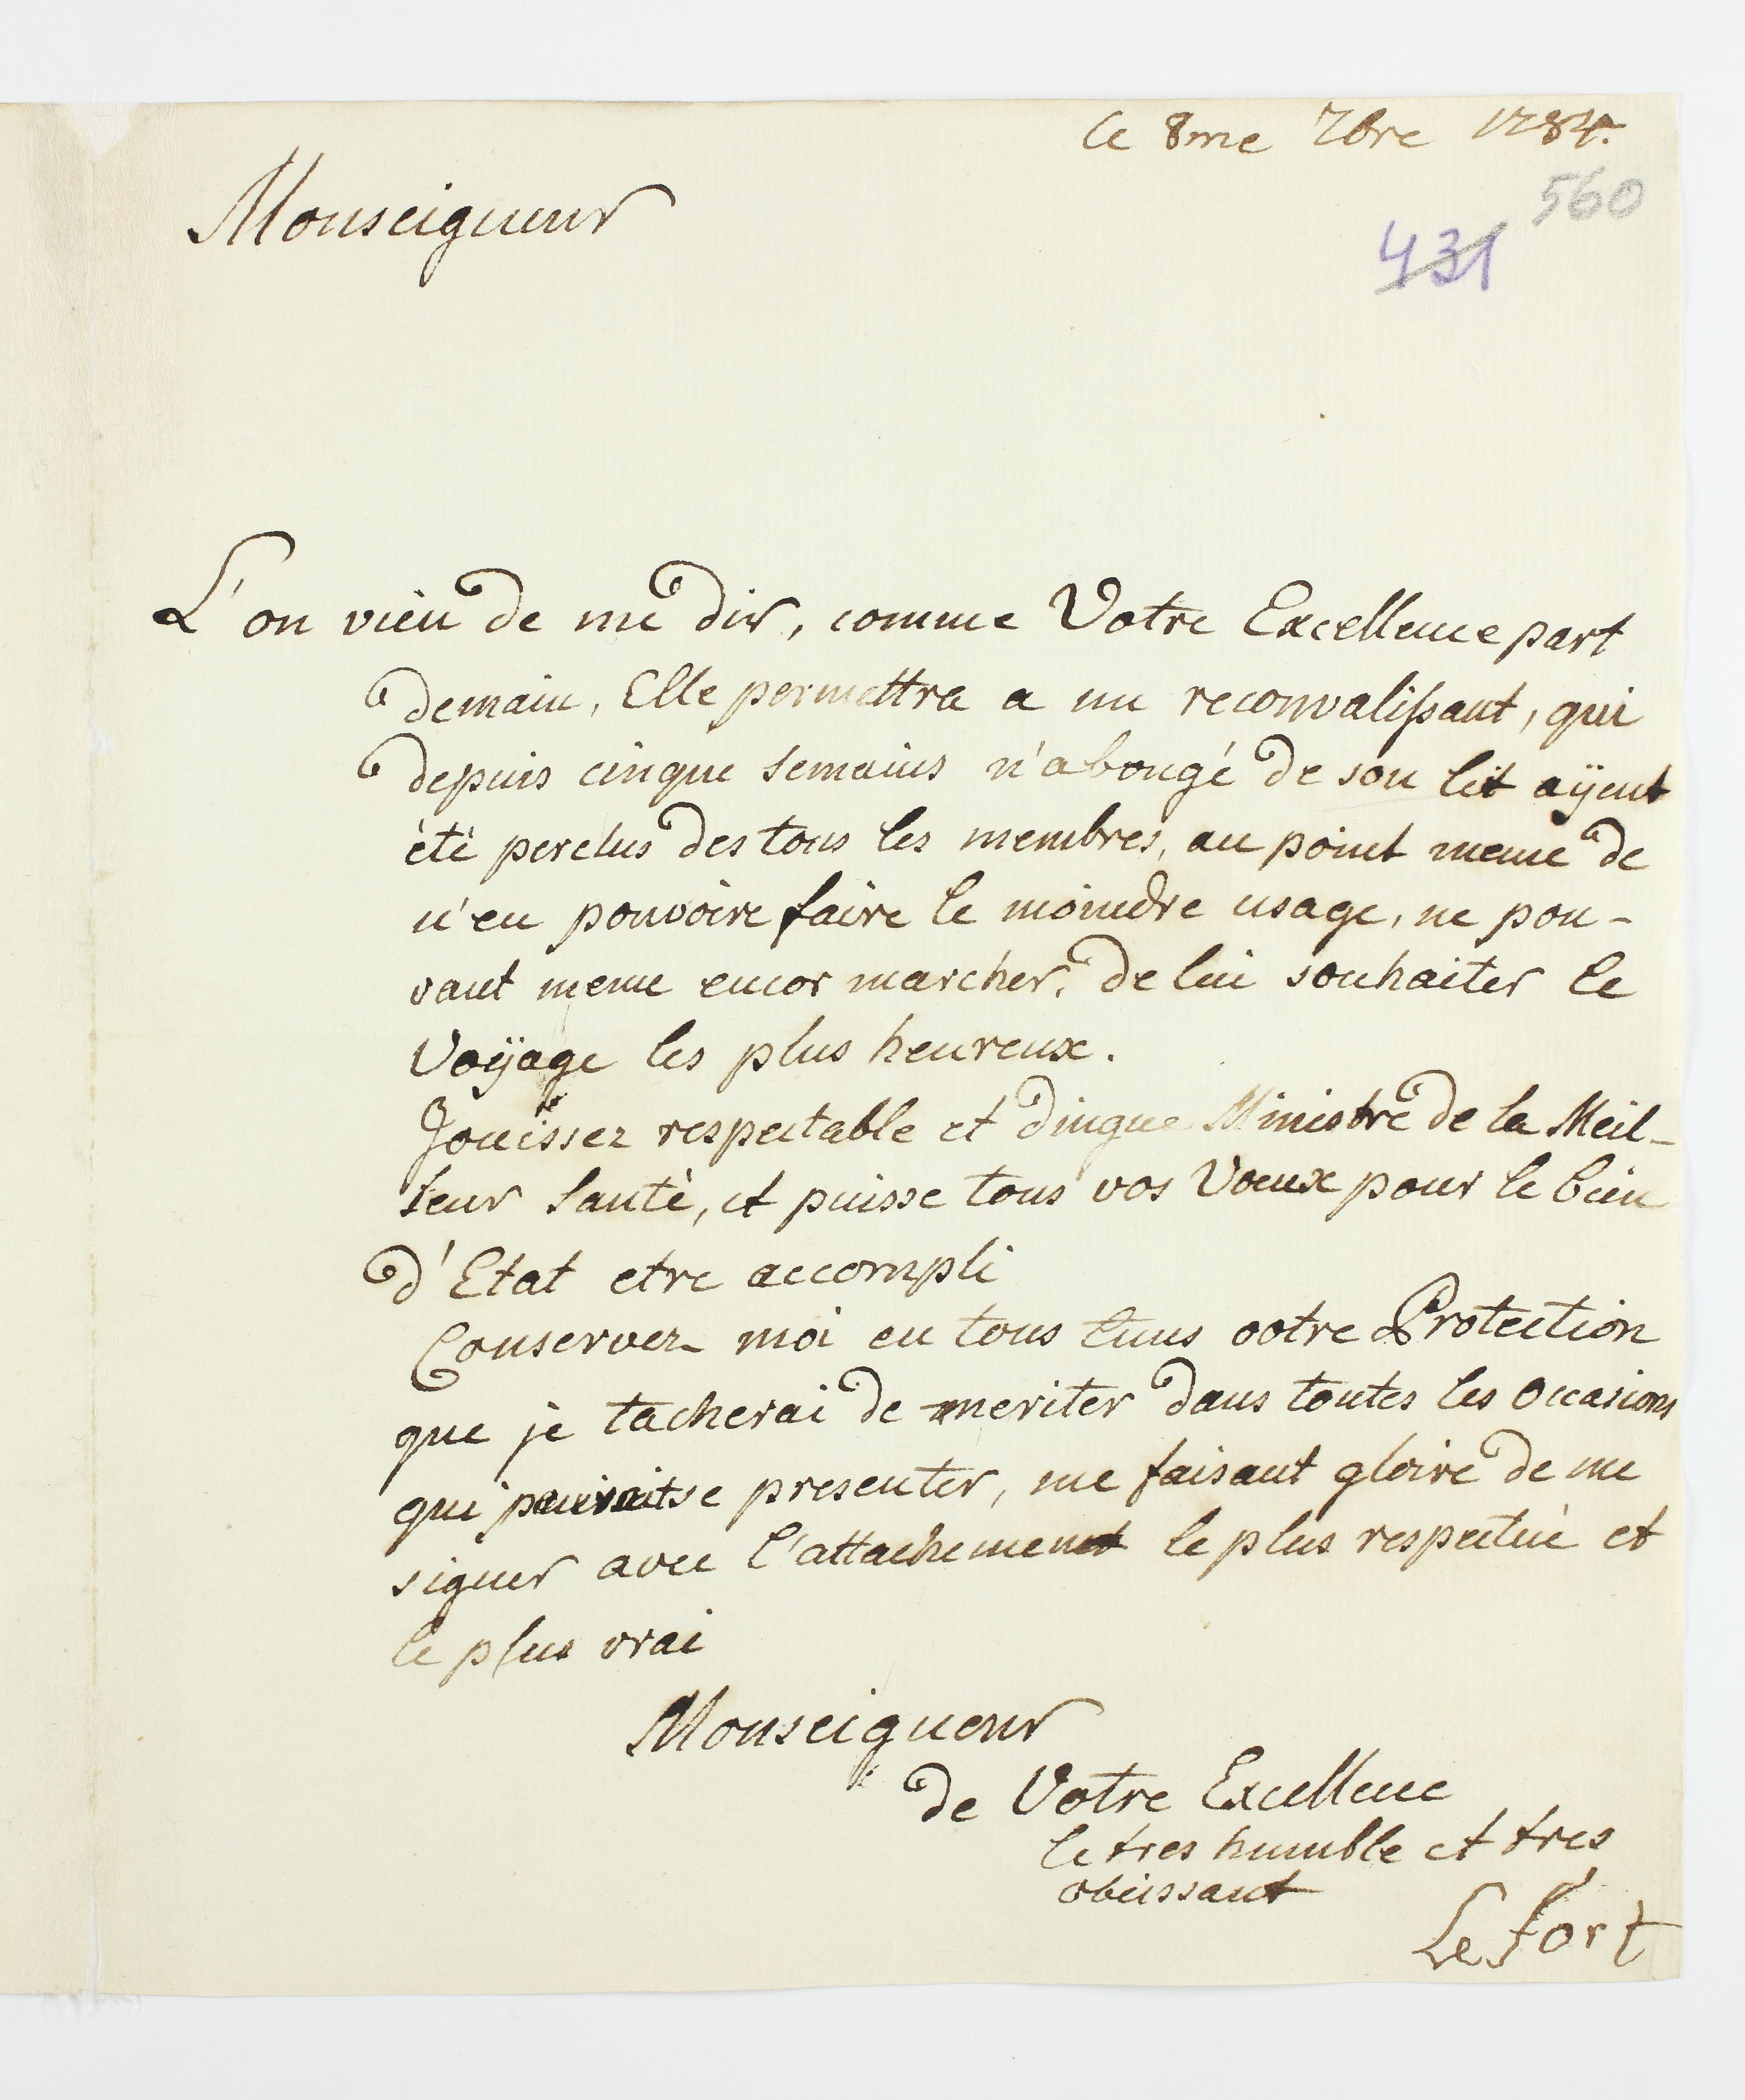 le 8me 7bre 1784.
560
431
Monseigneur
L'on vien de me dir, comme Votre Excellence part
demain, Elle permettra a un reconvalissant, qui
depuis cinque semains n'a bougé de son lit aÿent
été perclus des tous les membres, au point meme de
n'en pouvoire faire le moindre usage, ne pou-
vant meme encor marcher, de lui souhaiter le
Voÿage les plus heureux.
Jouissez respectable et dingue Ministre de la Meil-
leur Santè, et puisse tous vos Voeux pour le bien
d'Etat etre accompli
Conservez moi en tous tems votre Protection
que je tacherai de meriter dans toutes les Occasions
qui se presenter, me faisant gloire de me
signer avec l'attachement le plus respectué et
le plus vrai
Monseigneur
de Votre Excellence
le tres humble et tres
obeissant
Le Fort